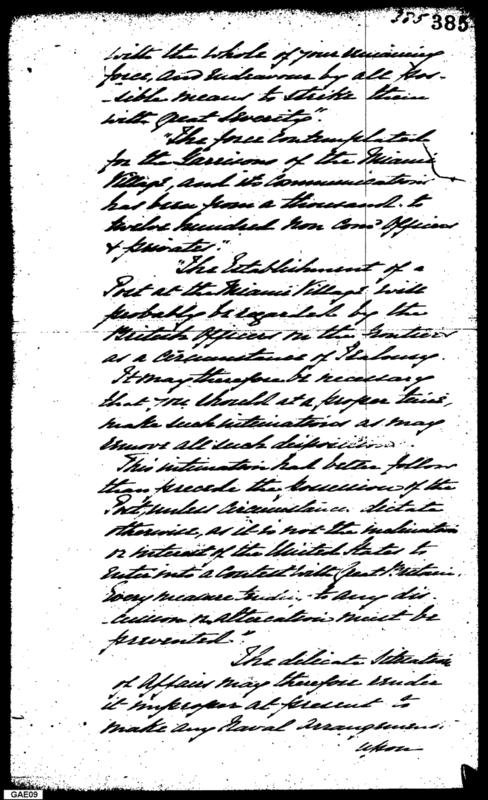 385 385
with the whole of your remaining
force, and endeavour by all pos-
-sible means to strike them
with great severity".
"The force contemplated
for the Garrisons of the Miami
Village, and its Communications
has been from a thousand to
twelve hundred Non Com'd Officers
& privates".
"The Establishment of a
Post at the Miami Village will
probably be regarded by the
British Officers on the frontiers
as a circumstance of Jealousy.
It may therefore be necessary
that you should at a proper time,
make such intimations as may
remove all such dispositions.
This intimation had better follow
than precede the possession of the
Post, unless circumstances dictate
otherwise, as it is not the inclination
or interest of the United States to
enter into a Contest with Great Britain.
Every measure tending to any dis-
-cussion or altercation must be
prevented".
The delicate Situation
of Affairs may therefore render
it improper at present to
make any Naval arrangement
upon
GAE09